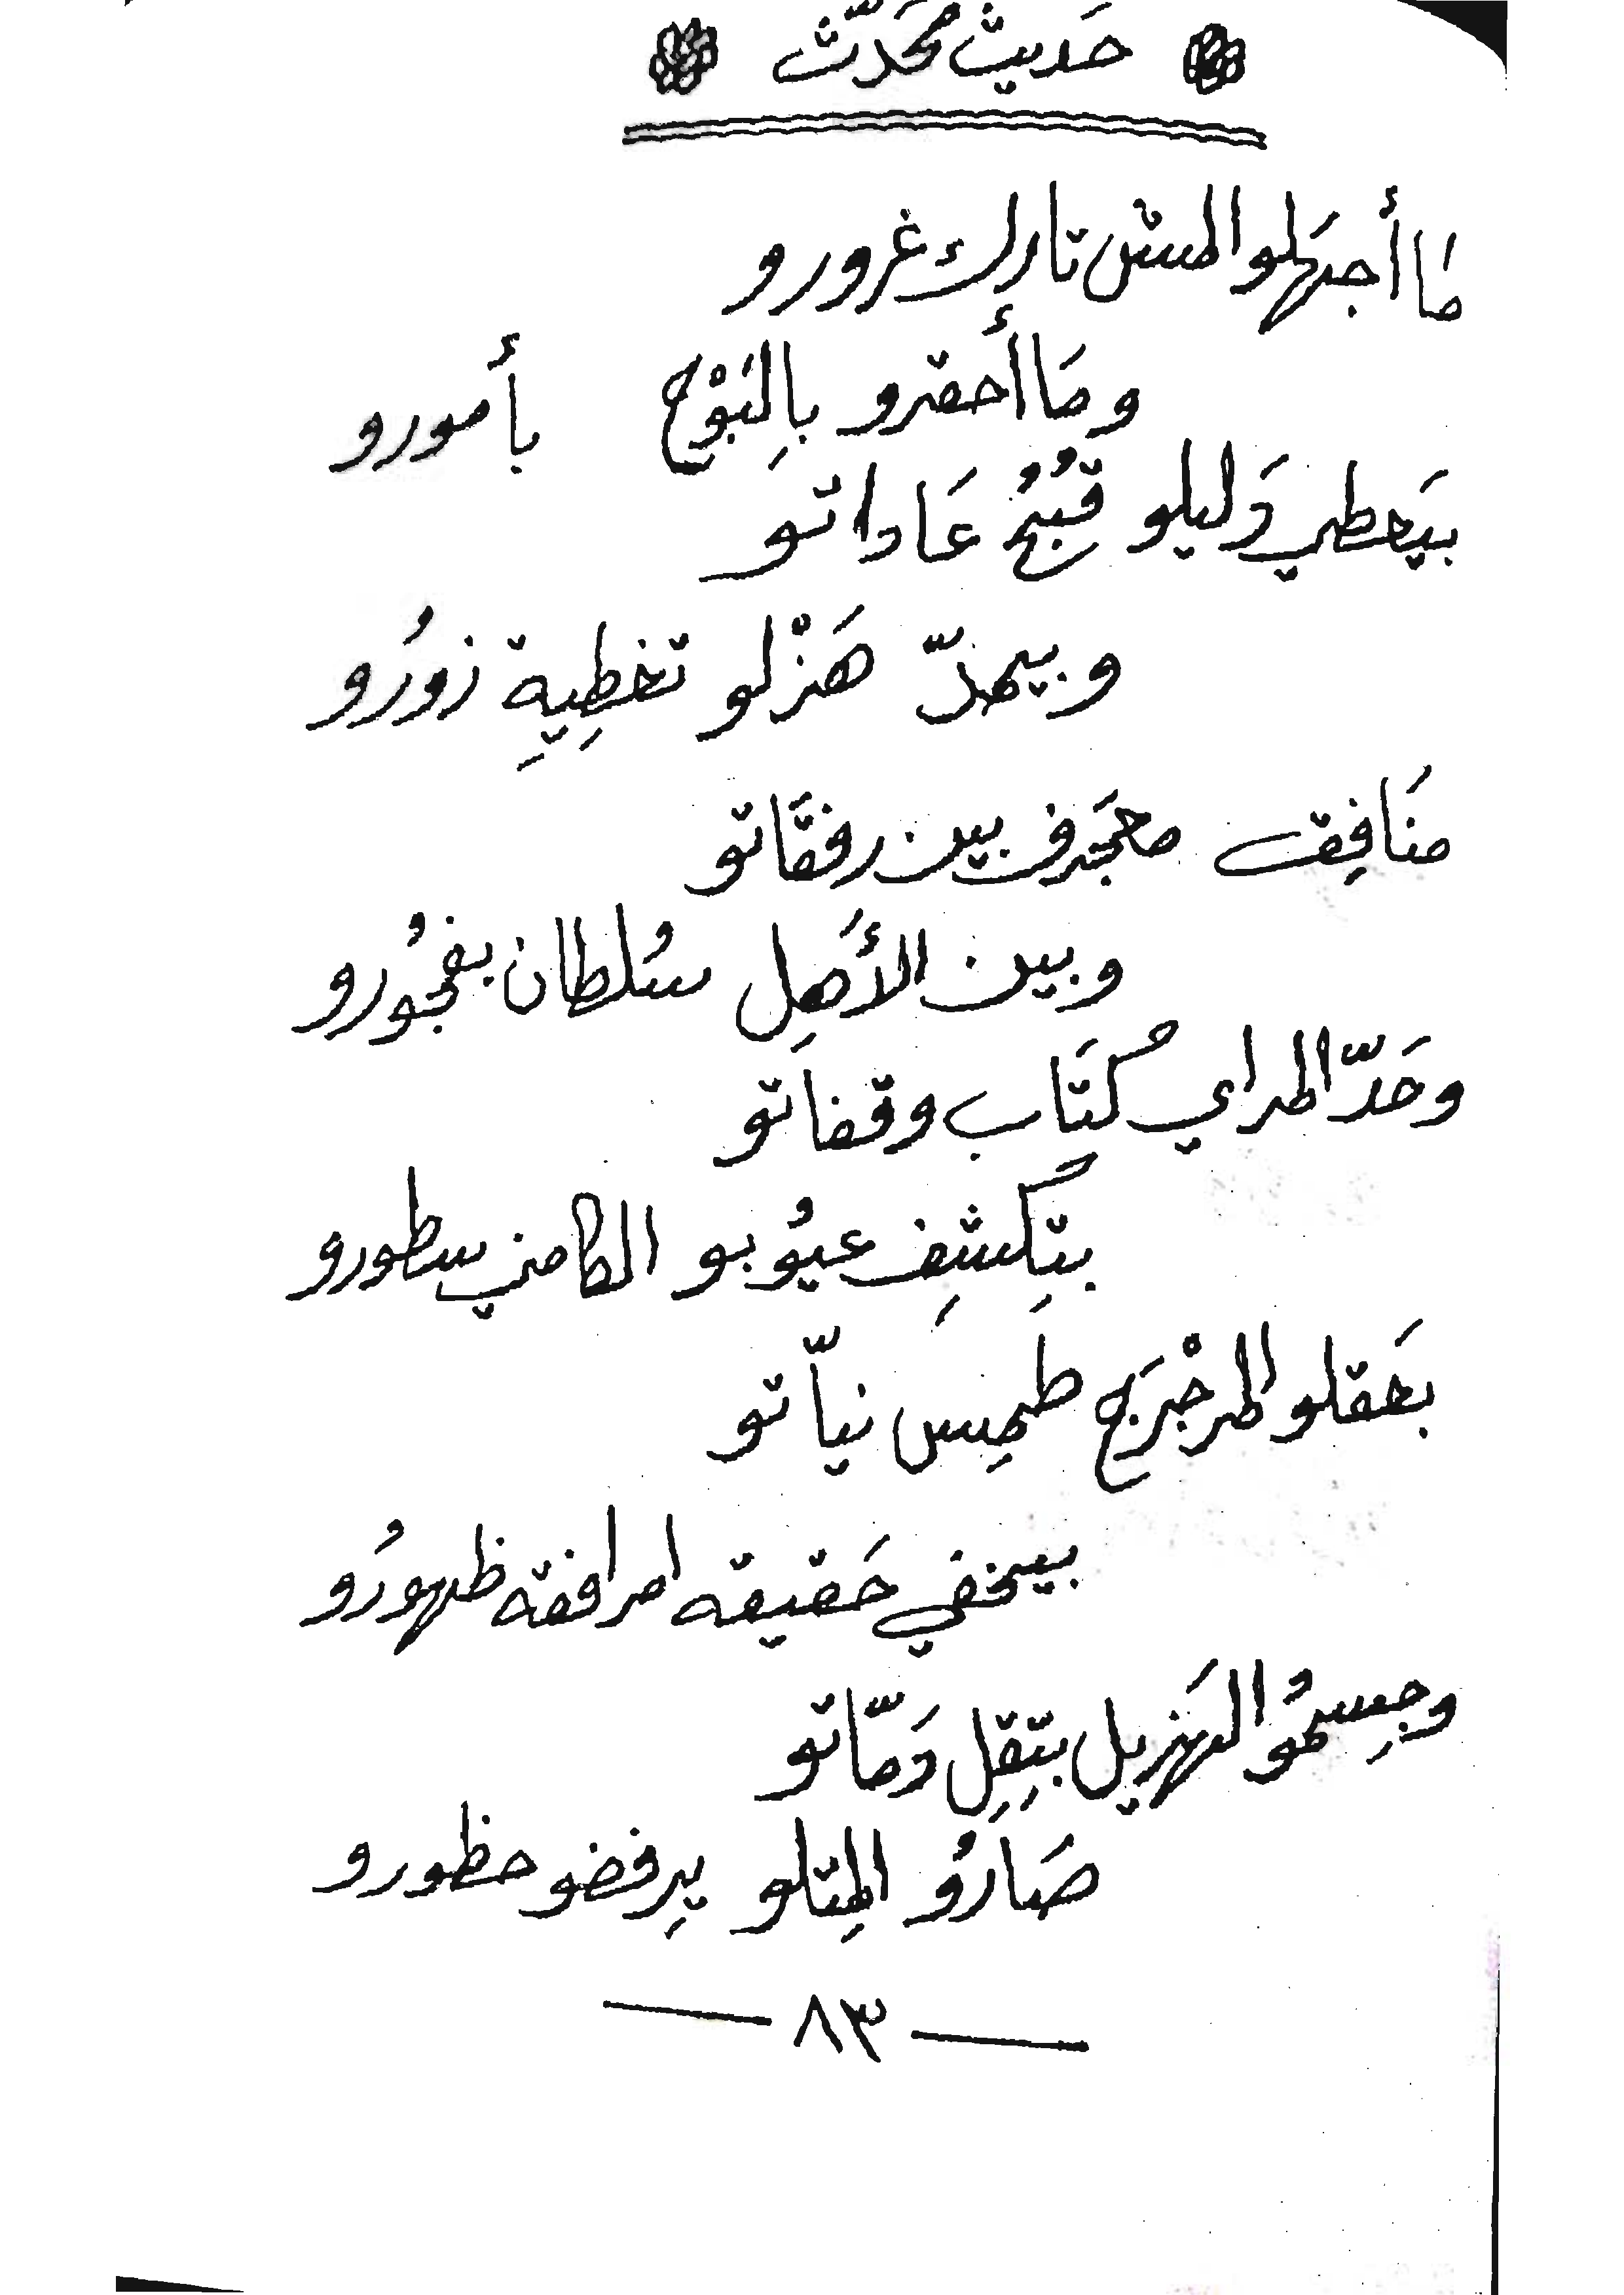 حَديث محَدّث
مَا أجهَلو المش تارك غرورو
ومَا أحقرو بالبَوْح بأمورو
بيَعطي دَليلو قبُح عَاداتو
وبيهدّ هَزْلو تغطِيةِ زورُو
منَافِق معجَرف بين رفقَاتو
وبين الأهَل سُلطان بفجُورو
وحَدّ المراي كتَاب وقفاتو
بتِكشفِ عيُوبو الكامني سطورو
بعَقلو المرجْرَج طمِس نيّاتو
بيخفي حَقيقه امرافقه ظهورُو
وجِسمُو الهَزيل بتِقِل دَمّاتو
صَارُو المِتلو يرِفضو حظورو
٨٣